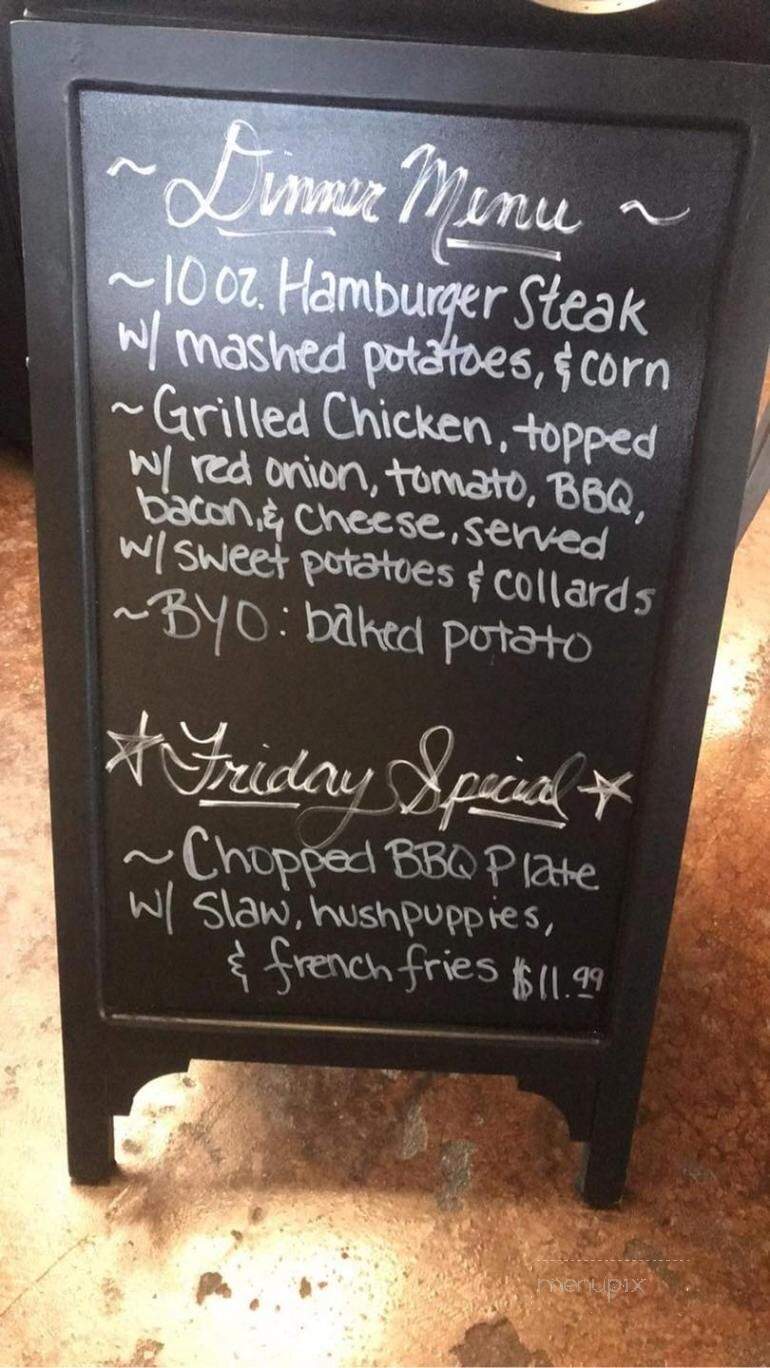 ~ Dinner Menu ~
~10 oz. Hamburger Steak
w/ mashed potatoes, & corn
~Grilled Chicken, topped
w/ red onion, tomato, BBQ,
bacon, & cheese, served
w/ sweet potatoes & collards
~BYO: baked potato
☆ Friday Special ☆
~Chopped BBQ Plate
w/ slaw, hushpuppies,
& french fries $11.99
menupix